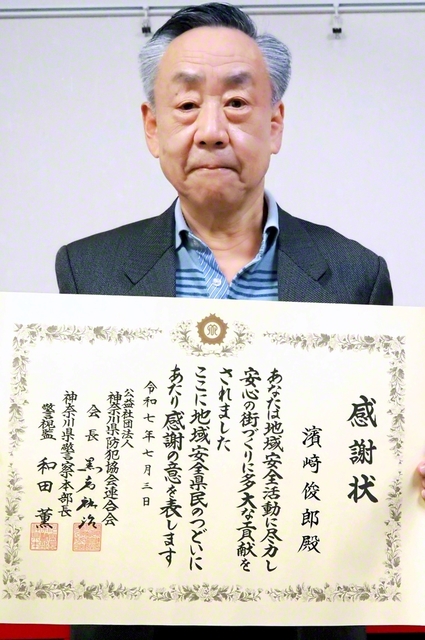 感謝状
濱﨑俊郎殿
あなたは地域安全活動に尽力し
安心の街づくりに多大な貢献を
されました
ここに地域安全県民のつどいに
あたり感謝の意を表します
令和七年七月三日
公益社団法人
神奈川県防犯協会連合会
会長
神奈川県警察本部長
警視監 和田 薫